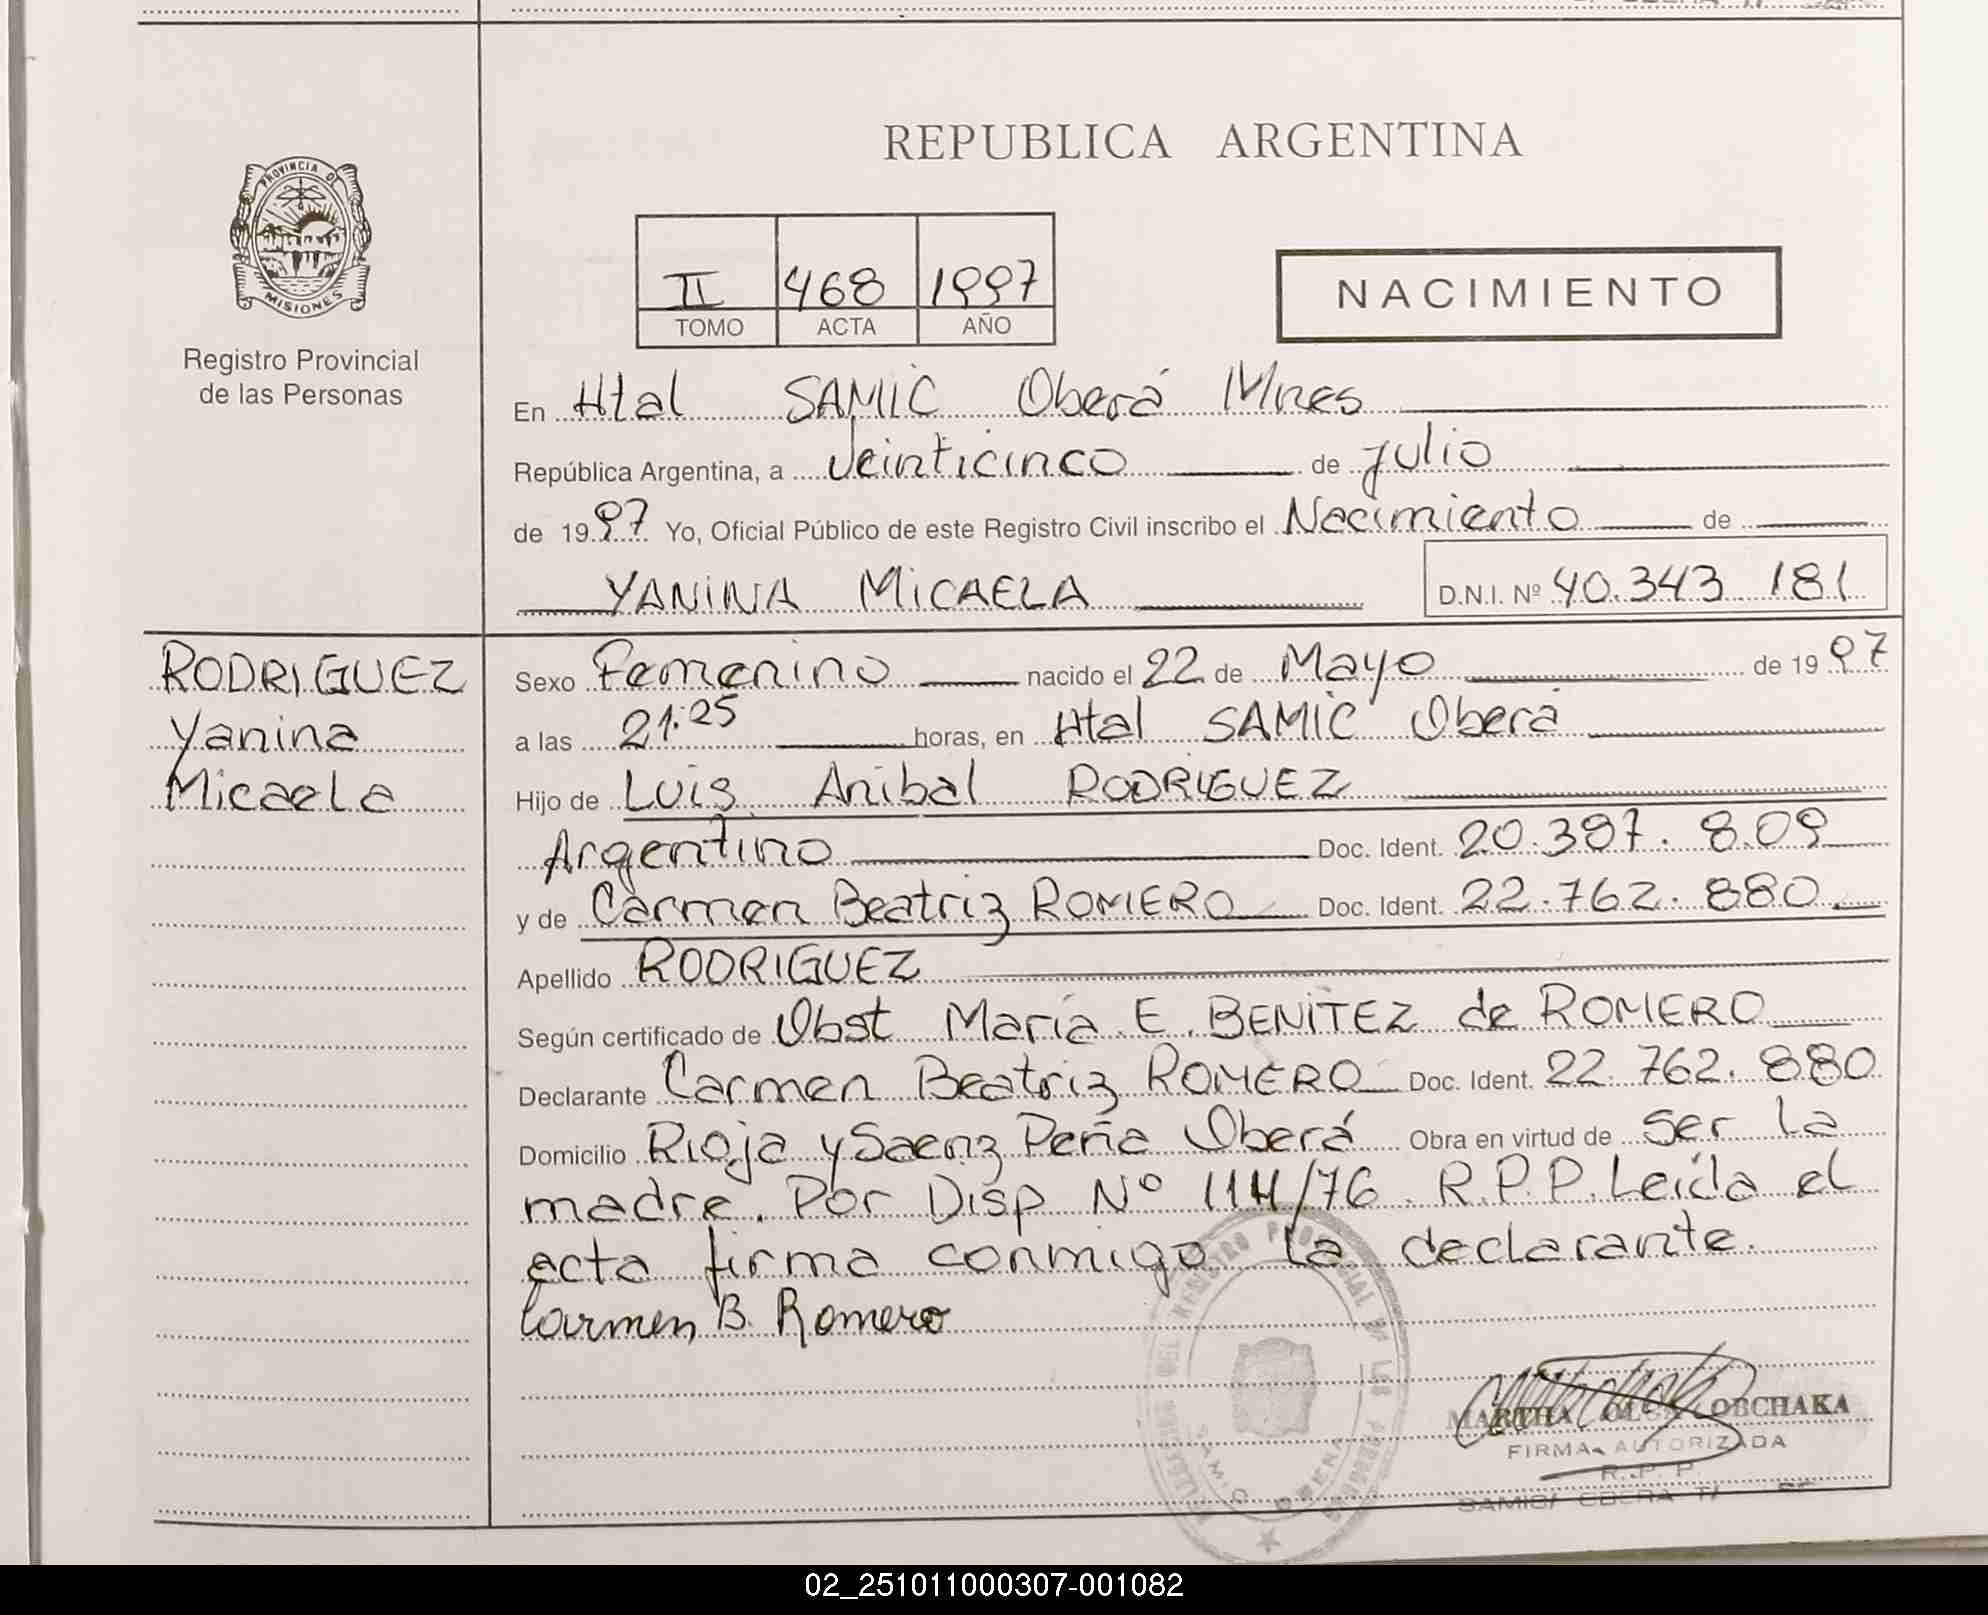 REPUBLICA ARGENTINA
PROVINCIA DE
MISIONES
Registro Provincial
de las Personas
II 468 1997
TOMO ACTA AÑO
NACIMIENTO
En Htal SAMIC Oberá Mnes
República Argentina, a Veinticinco de Julio
de 1997 Yo, Oficial Público de este Registro Civil inscribo el Nacimiento de
YANINA MICAELA D.N.I. Nº 40.343 181
RODRIGUEZ
Yanina
Micaela
Sexo Femenino nacido el 22 de Mayo de 1997
a las 21:25 horas, en Htal SAMIC Oberá
Hijo de Luis Anibal RODRIGUEZ
Argentino Doc. Ident. 20.387.809
y de Carmen Beatriz ROMERO Doc. Ident. 22.762.880
Apellido RODRIGUEZ
Según certificado de Obst María E. BENITEZ de ROMERO
Declarante Carmen Beatriz ROMERO Doc. Ident. 22.762.880
Domicilio Rioja y Saenz Peña Oberá Obra en virtud de ser la
madre. Por Disp Nº 114/76. R.P.P. Leída el
acta firma conmigo la declarante.
Carmen B. Romero
MARTHA OLGA
FIRMA AUTORIZADA
R. P. P.
SAMIC OBERA
02_251011000307-001082